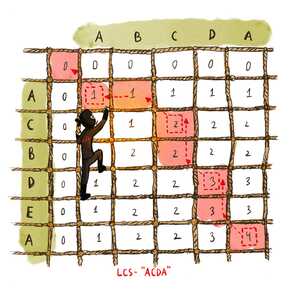 A B C D A
0 0 0 0 0 0
A 0 1 1 1 1 1
C 0 1 2 2 2
B 0 2 2 2 2
D 0 1 2 2 3 3
E 0 1 2 2 3 3
A 0 1 2 2 3 4
LCS - "ACDA"